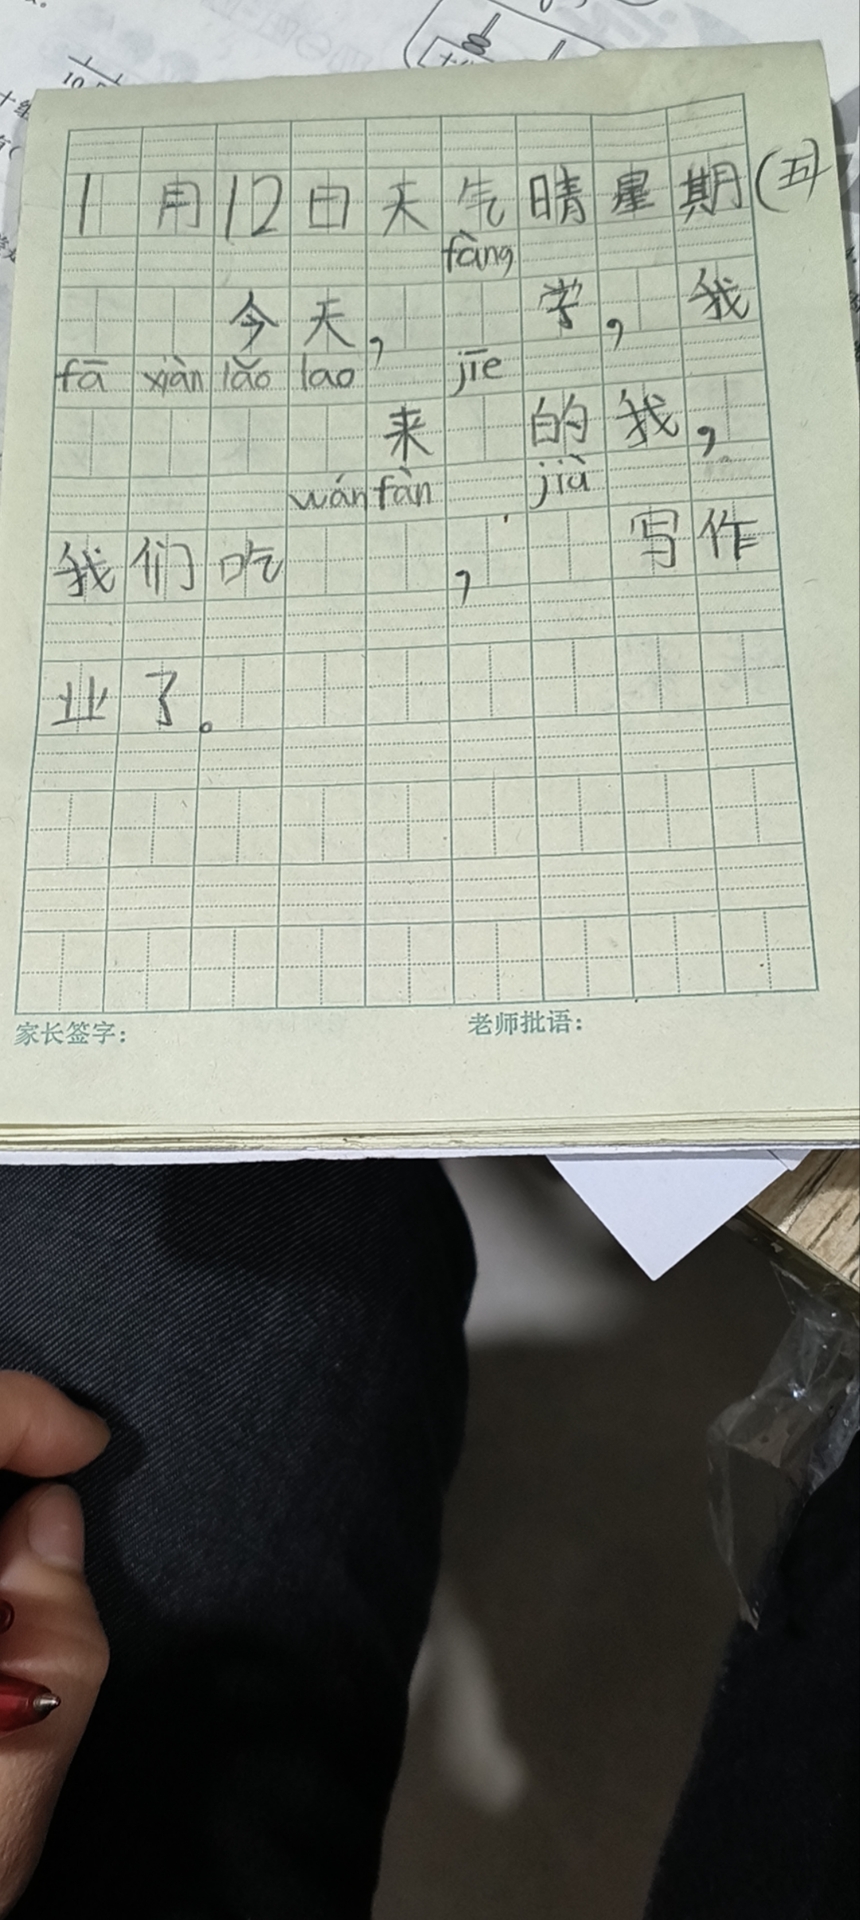 1月12日天气晴星期(五)
fàng
今天,学,我
fā xiàn lǎo lao jiē
来的我,
wán fàn jiù
我们吃,写作
业了。
家长签字: 老师批语: